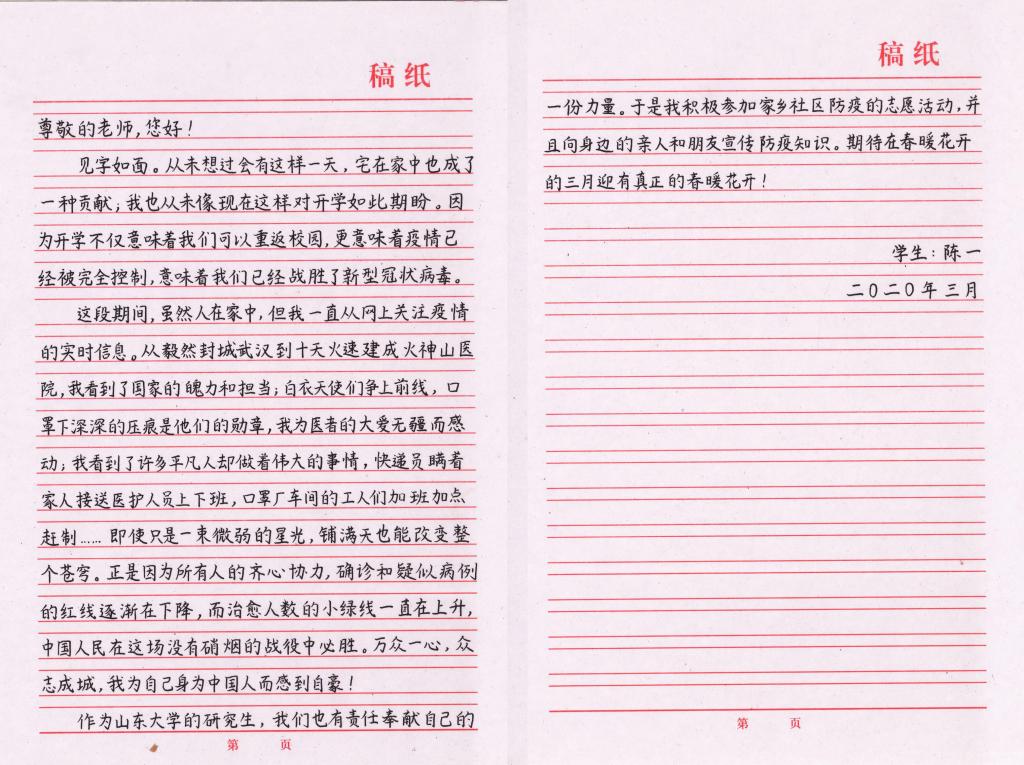 稿纸
尊敬的老师,您好!
见字如面。从未想过会有这样一天,宅在家中也成了
一种贡献;我也从未像现在这样对开学如此期盼。因
为开学不仅意味着我们可以重返校园,更意味着疫情已
经被完全控制,意味着我们已经战胜了新型冠状病毒。
这段期间,虽然人在家中,但我一直从网上关注疫情
的实时信息。从毅然封城武汉到十天火速建成火神山医
院,我看到了国家的魄力和担当;白衣天使们争上前线,口
罩下深深的压痕是他们的勋章,我为医者的大爱无疆而感
动;我看到了许多平凡人却做着伟大的事情,快递员瞒着
家人接送医护人员上下班,口罩厂车间的工人们加班加点
赶制……即使只是一束微弱的星光,铺满天也能改变整
个苍穹。正是因为所有人的齐心协力,确诊和疑似病例
的红线逐渐在下降,而治愈人数的小绿线一直在上升,
中国人民在这场没有硝烟的战役中必胜。万众一心,众
志成城,我为自己身为中国人而感到自豪!
作为山东大学的研究生,我们也有责任奉献自己的
第 页
稿纸
一份力量。于是我积极参加家乡社区防疫的志愿活动,并
且向身边的亲人和朋友宣传防疫知识。期待在春暖花开
的三月迎有真正的春暖花开!
学生:陈一
二〇二〇年三月
第 页